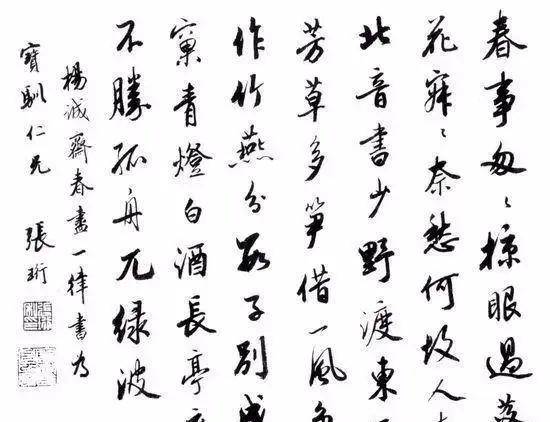 春事匆々掠眼過
花寂々奈愁何故人
北音書少野渡東
芳草多笋借一風
作竹燕分數子別成
窠青燈白酒長亭
不勝孤舟兀绿波
楊誠齋春盡一律書為
寶馴仁兄 張珩